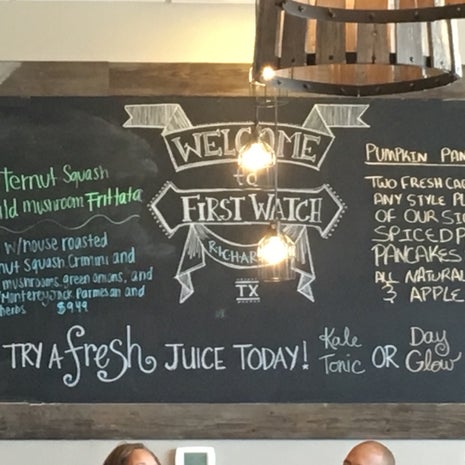 ternut Squash
ild mushroom Frittata
w/house roasted
nut Squash, Crimini and
mushrooms, green onions, and
Monterey Jack, Parmesan and
herbs $9.49
WELCOME
to
FIRST WATCH
RICHAR
TX
PUMPKIN PAN
TWO FRESH CA
ANY STYLE PL
OF OUR SI
SPICED P
PANCAKES
ALL NATURAL
& APPLE
TRY A fresh JUICE TODAY! Kale Tonic OR Day Glow